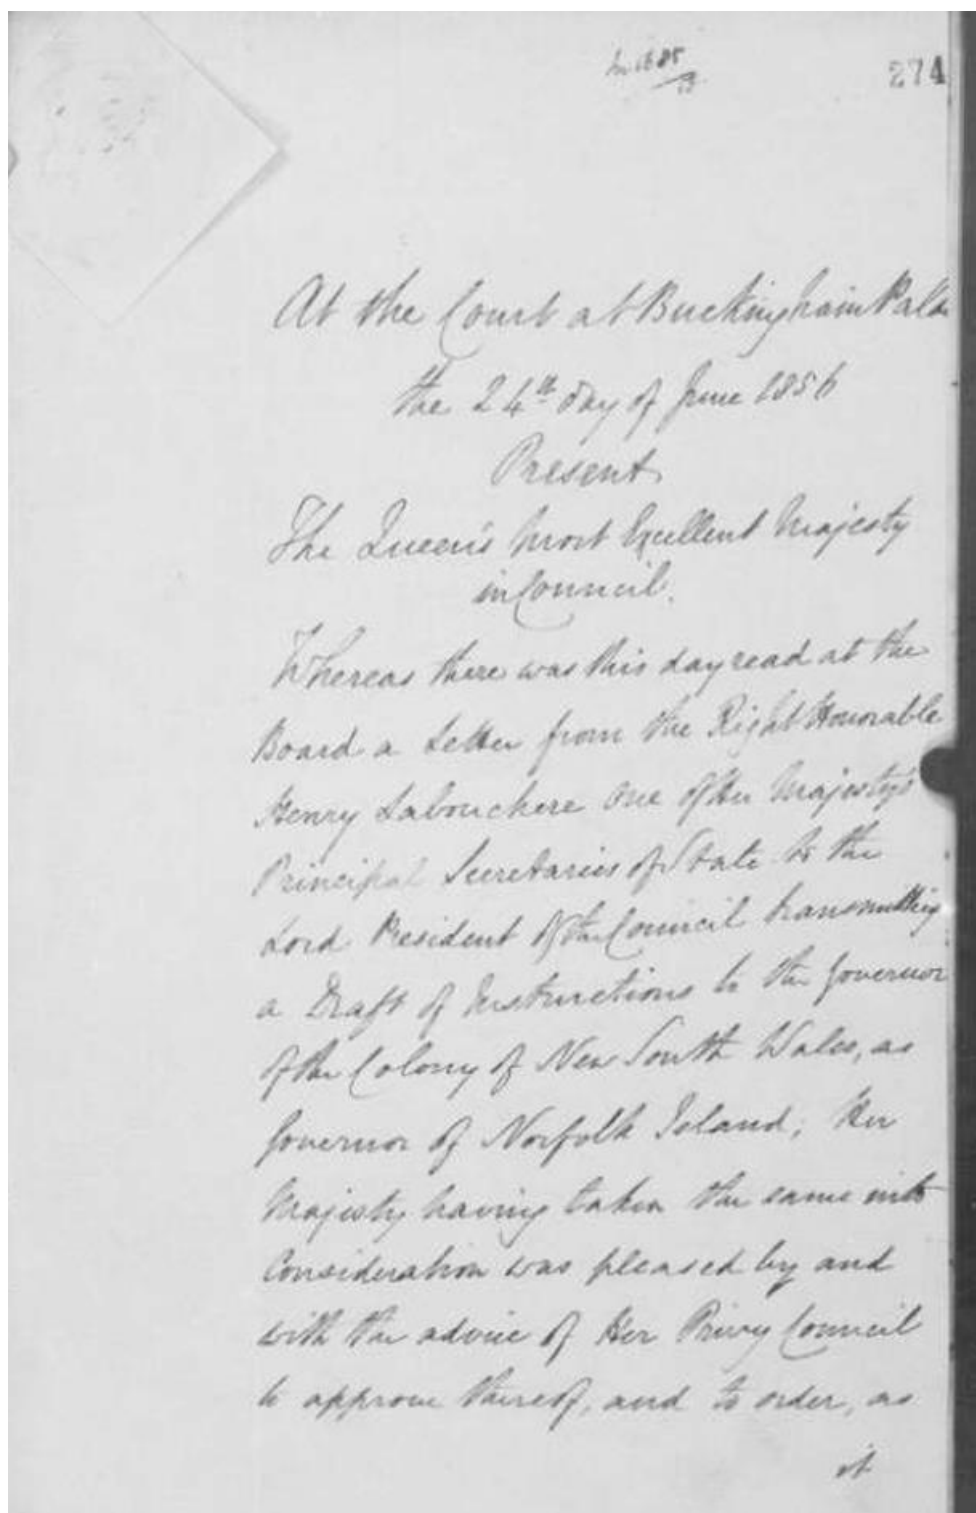 274
At the Court at Buckingham Palace
the 24th day of June 1856
Present
The Queen's Most Excellent Majesty
in Council.
Whereas there was this day read at the
Board a Letter from the Right Honorable
Henry Labouchere one of Her Majesty's
Principal Secretaries of State to the
Lord President of the Council transmitting
a Draft of Instructions to the Governor
of the Colony of New South Wales, as
Governor of Norfolk Island; Her
Majesty having taken the same into
Consideration was pleased by and
with the advice of Her Privy Council
to approve thereof, and to order, as
it